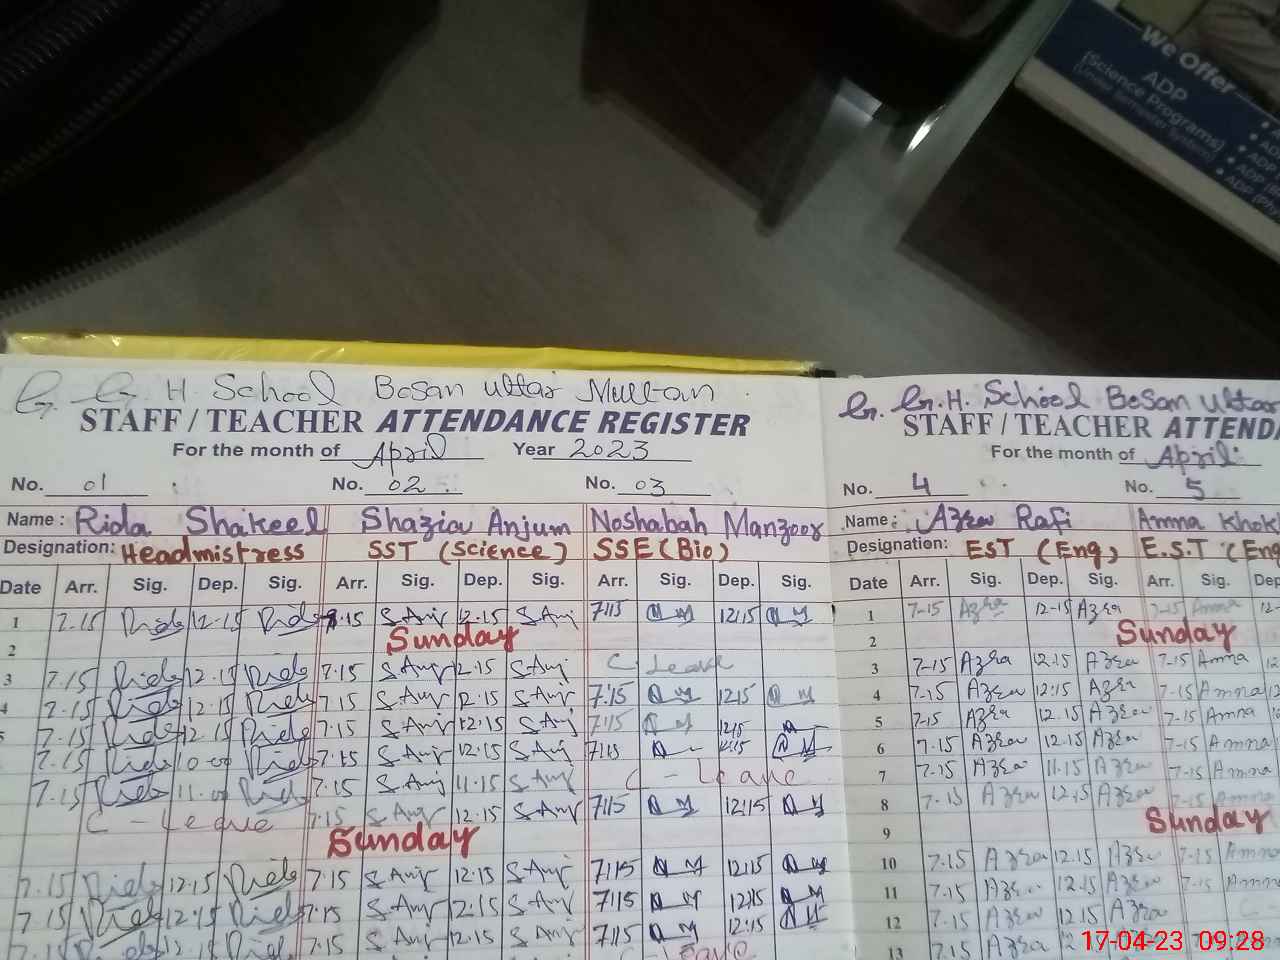 We Offer
ADP
(Science Programs)
G. G. H. School Bosan Uttar Multan
STAFF / TEACHER ATTENDANCE REGISTER
For the month of April Year 2023
No. 01 No. 02 No. 03
Name: Rida Shakeel Shazia Anjum Noshabah Manzoor
Designation: Headmistress SST (Science) SSE (Bio)
Date Arr. Sig. Dep. Sig. Arr. Sig. Dep. Sig. Arr. Sig. Dep. Sig.
1 7.15 12.15 7.15 S Anj 12.15 S Anj 7:15 12:15
2 Sunday
3 7.15 12.15 7.15 S Anj 12.15 S Anj C Leave
4 7.15 12.15 7.15 S Anj 12.15 S Anj 7:15 12:15
5 7.15 12.15 7.15 S Anj 12:15 S Anj 7:15 12:15
7.15 10-00 7.15 S Anj 12:15 S Anj 7:15 12:15
7.15 11.00 7.15 S Anj 11.15 S Anj C - Leave
C - Leave 7.15 S Anj 12.15 S Anj 7:15 12:15
Sunday
7.15 12.15 7.15 S Anj 12.15 S Anj 7:15 12:15
7.15 12.15 7.15 S Anj 12.15 S Anj 7:15 12:15
7.15 12.15 7.15 S Anj 12.15 S Anj 7:15 12:15
C-Leave
G. G. H. School Bosan Uttar
STAFF / TEACHER ATTENDA
For the month of April
No. 4 No. 5
Name: Azra Rafi Amna Khok
Designation: EST (Eng) E.S.T (Eng
Date Arr. Sig. Dep. Sig. Arr. Sig. Dep
1 7-15 Azra 12-15 Azra 7-15 Amna 12-
2 Sunday
3 7-15 Azra 12.15 Azra 7-15 Amna
4 7-15 Azra 12:15 Azra 7-15 Amna
5 7.15 Azra 12.15 Azra 7-15 Amna
6 7.15 Azra 12.15 Azra 7-15 Amna
7 7.15 Azra 11.15 Azra 7-15 Amna
8 7.15 Azra 12.15 Azra 7-15 Amna
9 Sunday
10 7.15 Azra 12.15 Azra 7-15 Amna
11 7.15 Azra 12.15 Azra 7-15 Amna
12 7.15 Azra 12.15 Azra C-
13 7.15 Azra
17-04-23 09:28